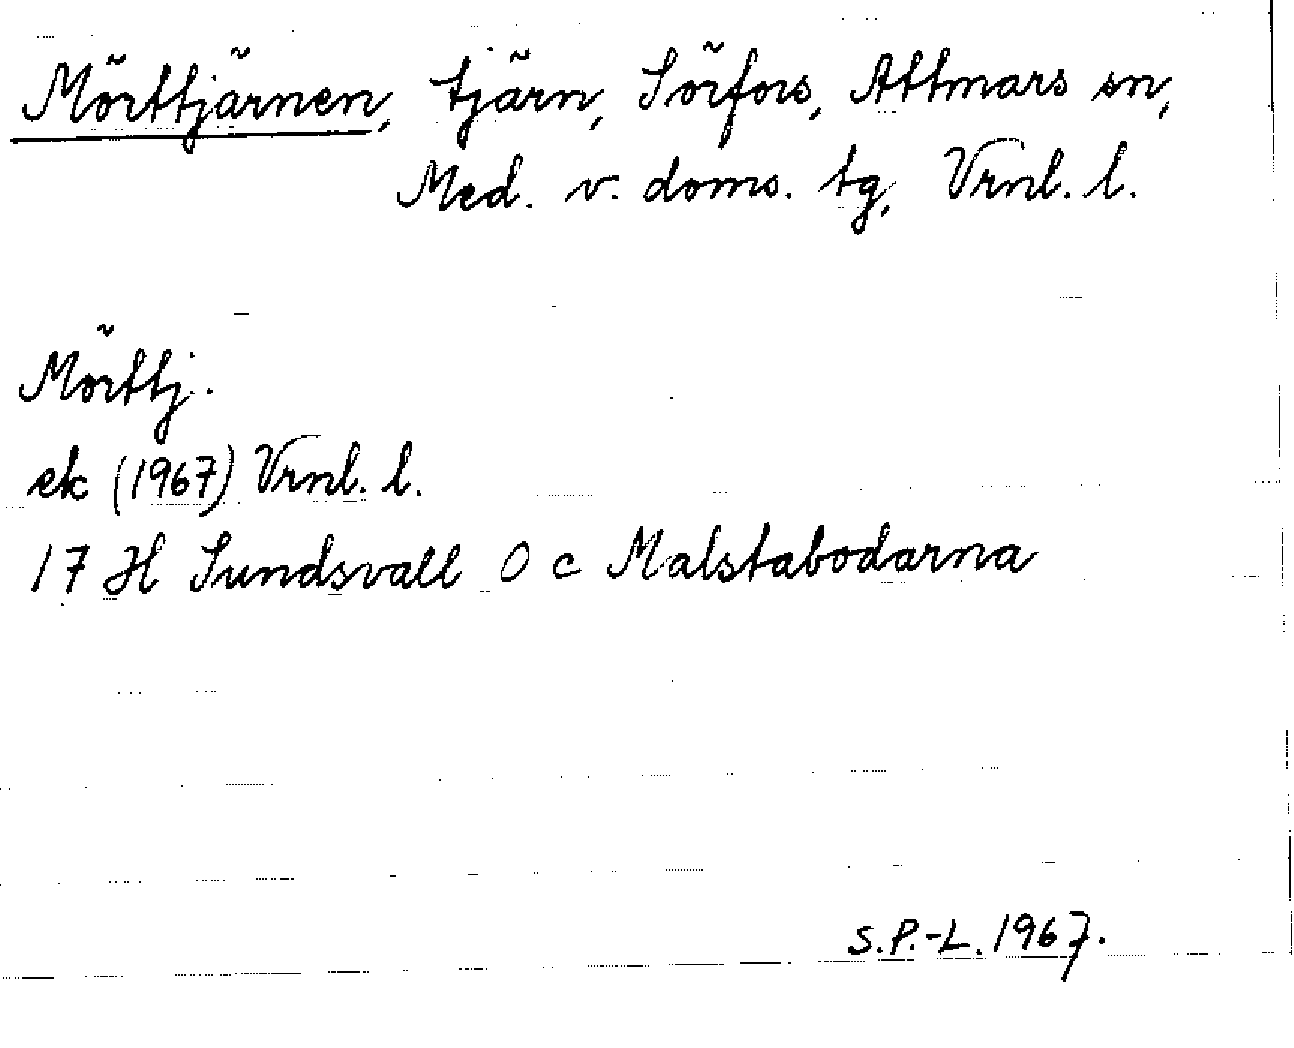 Mörttjärnen, tjärn, Sörfors, Attmars sn,
Med. v. doms. tg, Vrnl. l.
Mörttj.
ek (1967) Vrnl. l.
17 H Sundsvall 0 c Malstabodarna
S.P.-L. 1967.